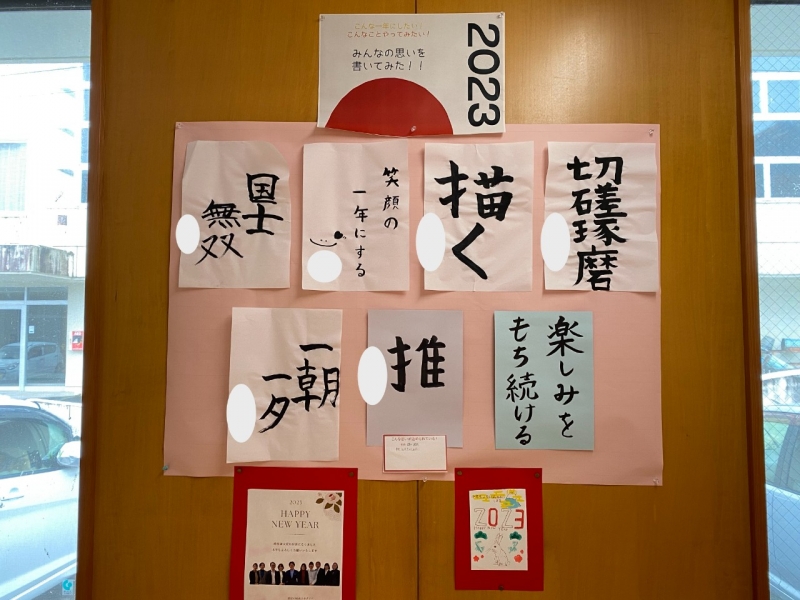 こんな一年にしたい！
こんなことやってみたい！
みんなの思いを
書いてみた！！
2023
切磋琢磨
描く
笑顔の
一年にする
国士
無双
楽しみを
もち続ける
推
一朝
一夕
2023
HAPPY
NEW YEAR
2023